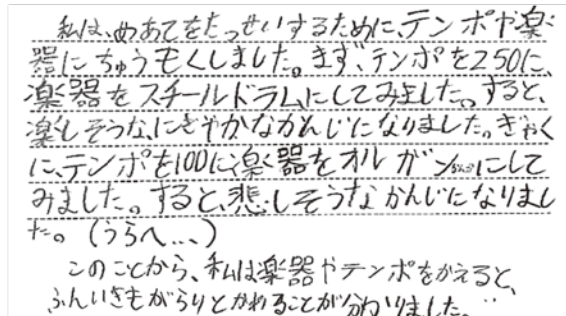 私は、めあてをたっせいするために、テンポや楽
器にちゅうもくしました。まず、テンポを250に、
楽器をスチールドラムにしてみました。すると、
楽しそうな、にぎやかなかんじになりました。ぎゃく
に、テンポを100に、楽器をオルガンにして
みました。すると、悲しそうなかんじになりまし
た。(うらへ...)
このことから、私は楽器やテンポをかえると、
ふんいきもがらりとかわることが分かりました。